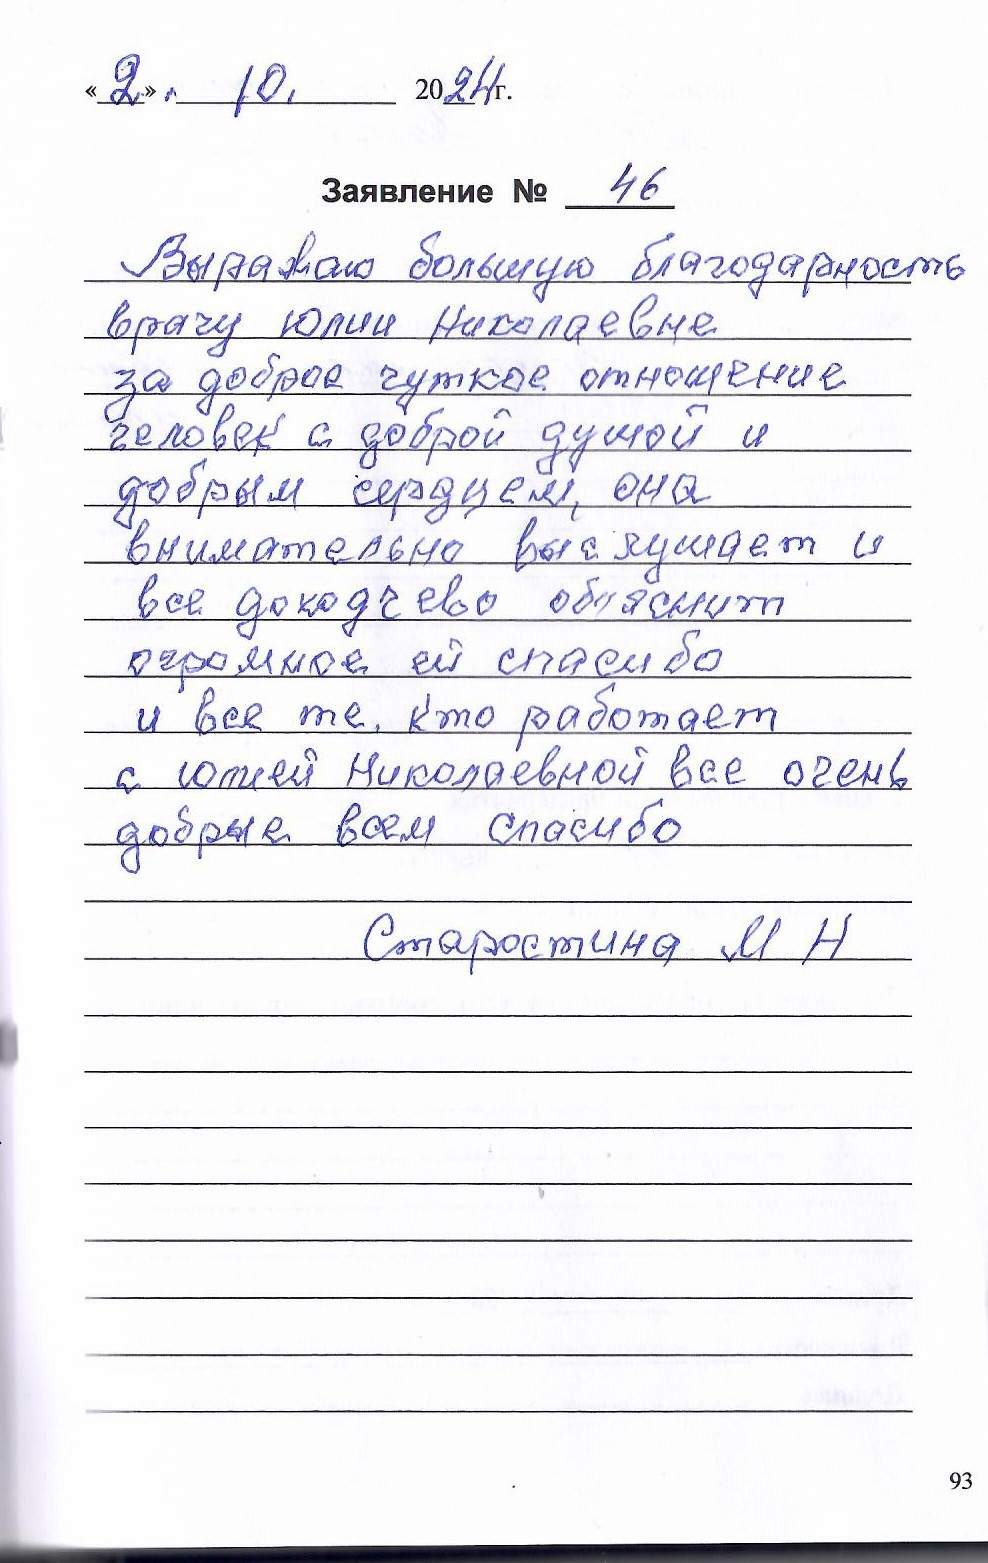 «2». 10. 2024г.
Заявление № 46
Выражаю большую благодарность
врачу Юлии Николаевне
за доброе чуткое отношение
человек с доброй душой и
добрым сердцем, она
внимательно выслушает и
все доходчево обпяснит
огромное ей спасибо
и все те, кто работает
с Юлией Николаевной все очень
добрые всем спасибо
Старостина М Н
93